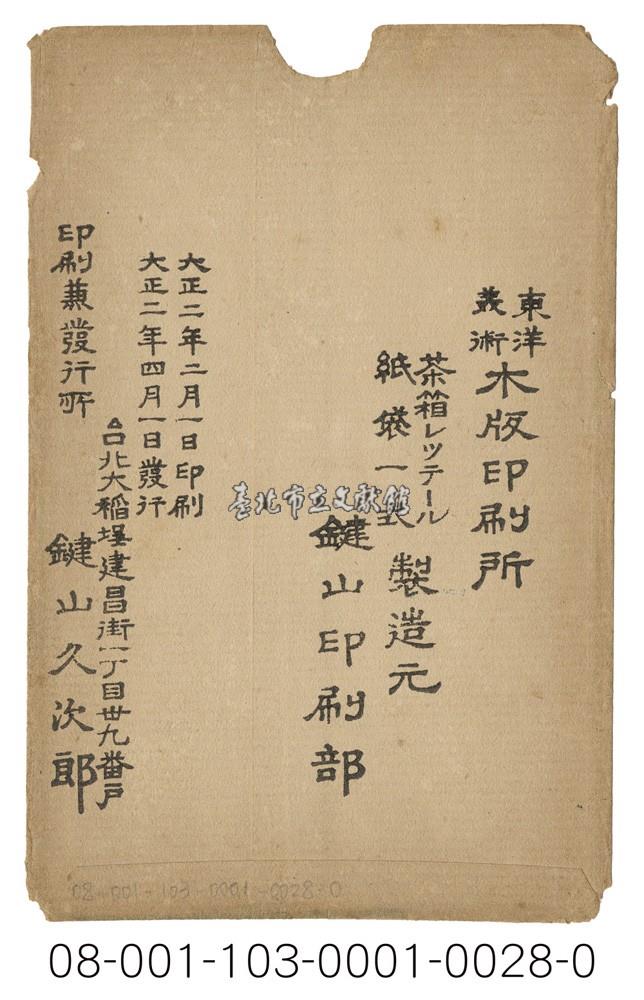 東洋
美術
木版印刷所
茶箱レツテール
紙袋一式
製造元
鍵山印刷部
大正二年二月一日印刷
大正二年四月一日發行
台北大稻埕建昌街一丁目卅九番戶
印刷兼發行所
鍵山久次郎
臺北市立文獻館
08-001-103-0001-0028-0
08-001-103-0001-0028-0